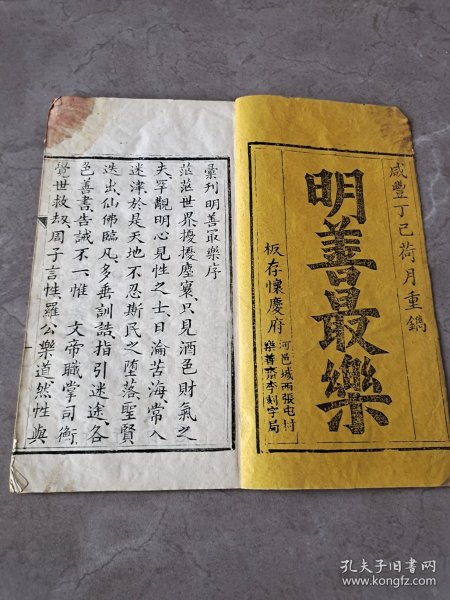 咸豐丁巳荷月重鐫
明善最樂
板存懷慶府
河邑城西張屯村
樂善齋李刻字局
彙刊明善最樂序
茫茫世界擾擾塵寰只見酒色財氣之
夫罕覩明心見性之士日淪苦海常入
迷津於是天地不忍斯民之墮落聖賢
迭出仙佛臨凡多垂訓誥指引迷途各
邑善書告誡不一惟 文帝職掌司衡
覺世救劫周子言性羅公樂道然性與
孔夫子旧书网
www.kongfz.com